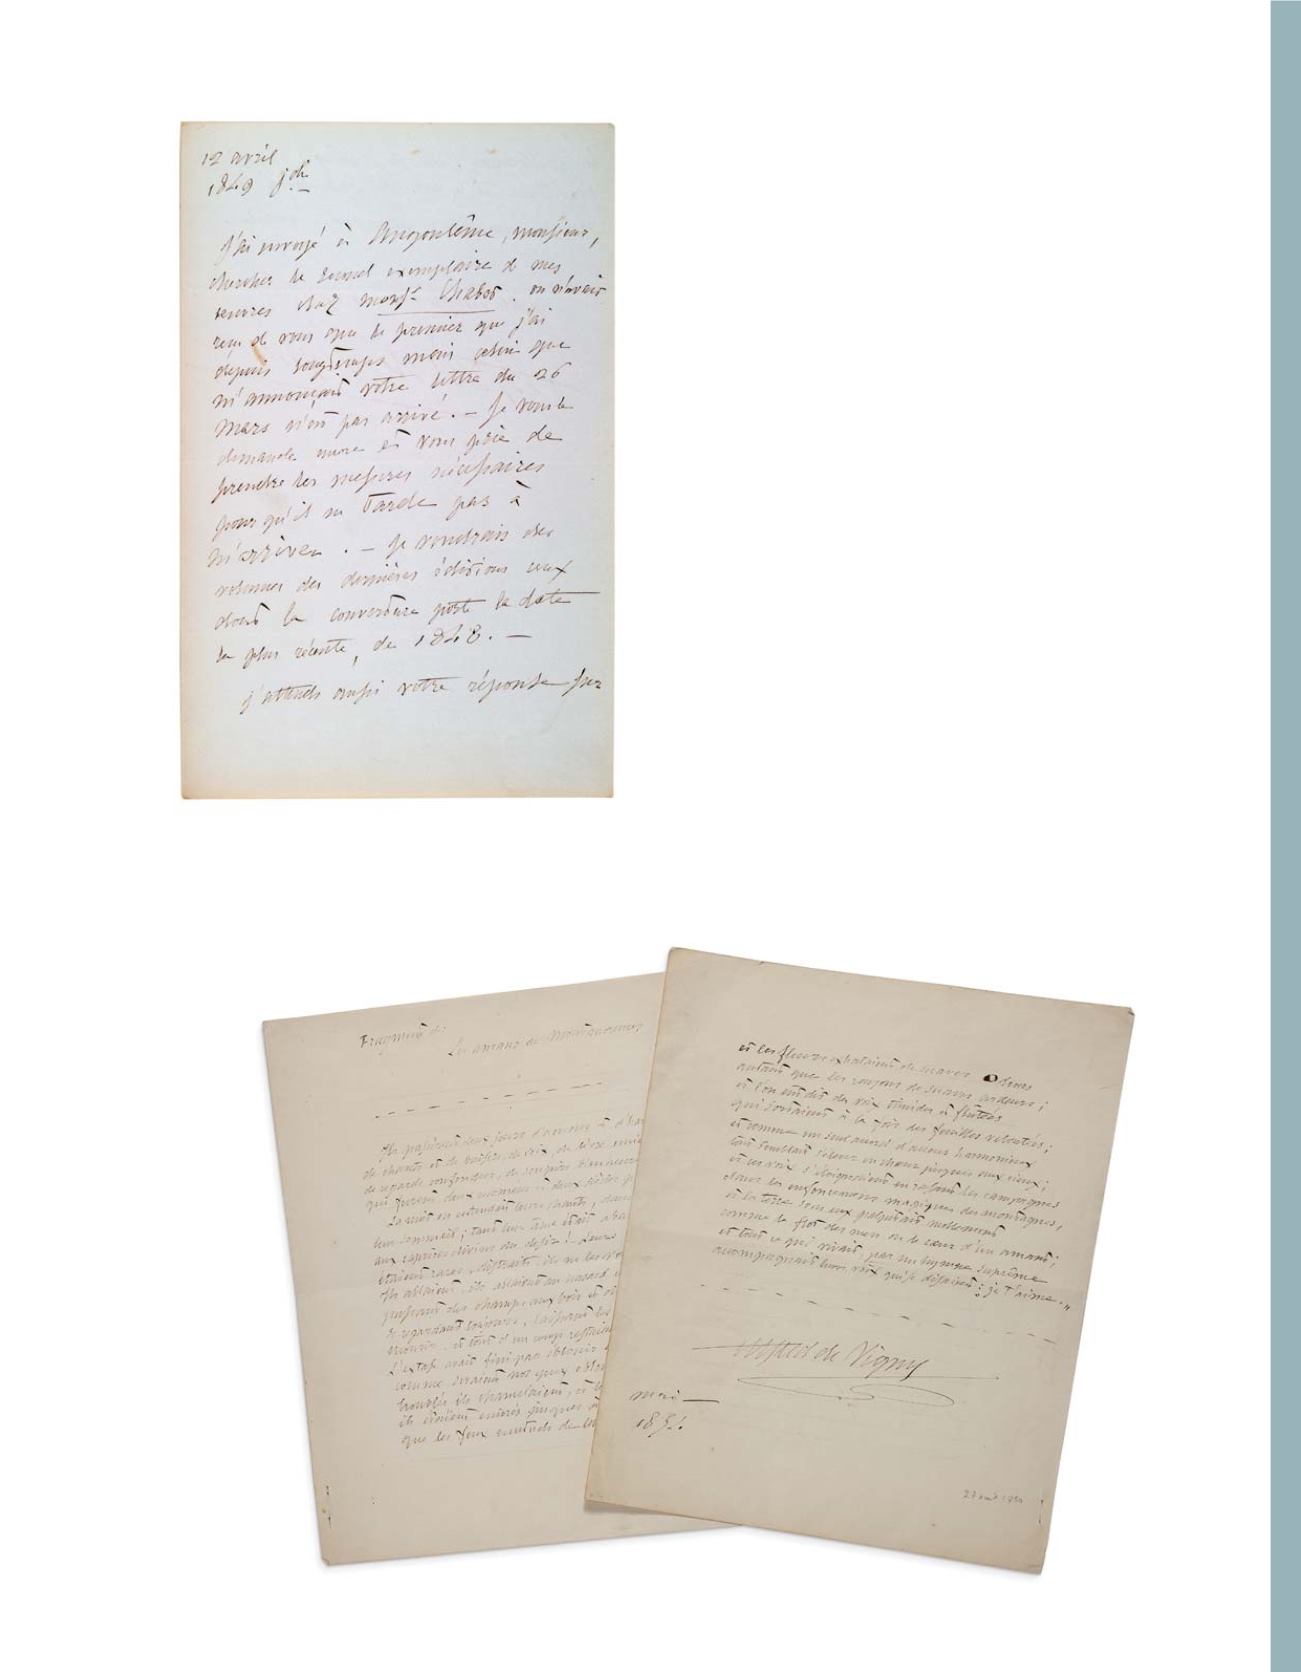 12 avril
1849 jdi
j'ai envoyé à Angoulême, monsieur,
chercher le second exemplaire de mes
œuvres chez Monsr. Chabot. on n'avait
reçu de vous que le premier que j'ai
depuis longtemps mais celui que
m'annonçait votre lettre du 26
Mars n'est pas arrivé. — Je vous le
demande encore et vous prie de
prendre les mesures nécessaires
pour qu'il ne Tarde pas à
m'arriver. — Je voudrais des
volumes des dernières éditions ceux
dont la couverture porte la date
la plus récente, de 1848. —
j'attends aussi votre réponse sur
Fragment de
Les amants de Montmorency
Ils passèrent deux jours d'amour et d'har
de chants et de baisers, de voix, de lèvre unie
de regards confondus, de soupirs bienheureux
qui furent deux moments et deux siècles p
La nuit on entendait leurs chants, dans
leur sommeil ; tant leur âme était aba
aux caprices divins du désir ! Leurs
étaient rares, distraits, ils ne les v
Ils allaient, ils allaient au hasard
passant des champs aux bois et
se regardant toujours, laissant les
mourir. et tout d'un coup restaient
L'extase avait fini par éblouir
comme seraient nos yeux éblou
troublés ils chancelaient, et le
ils étaient enivrés jusques à
que les feux mutuels de leu
et les fleurs exhalaient de suaves odeurs
autant que les rayons de suaves ardeurs ;
et l'on entendit des voix timides et flûtées
qui sortaient à la fois des feuilles veloutées ;
et comme un seul accord d'accens harmonieux
tout semblait s'élever en chœur jusques aux cieux ;
et ces voix s'éloignaient en rasant les campagnes
dans les enfoncemens magiques des montagnes,
et la terre sous eux palpitait mollement
comme le flot des mers ou le cœur d'un amant ;
et tout ce qui vivait, par un hymne suprême
accompagnait leurs voix qui se disaient : je t'aime. „
Alfred de Vigny
mai —